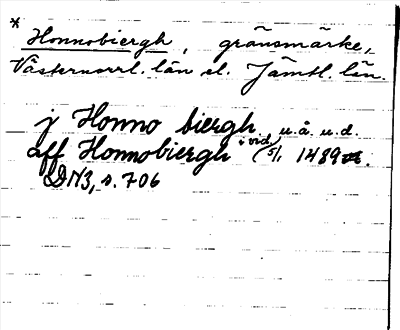 *
Honnobiergh, gränsmärke,
Västernorrl. län el. Jämtl. län.
j Honno biergh, u.å. u.d.
aff Honnobiergh (vid s/, 1489.
DN3, s. 706